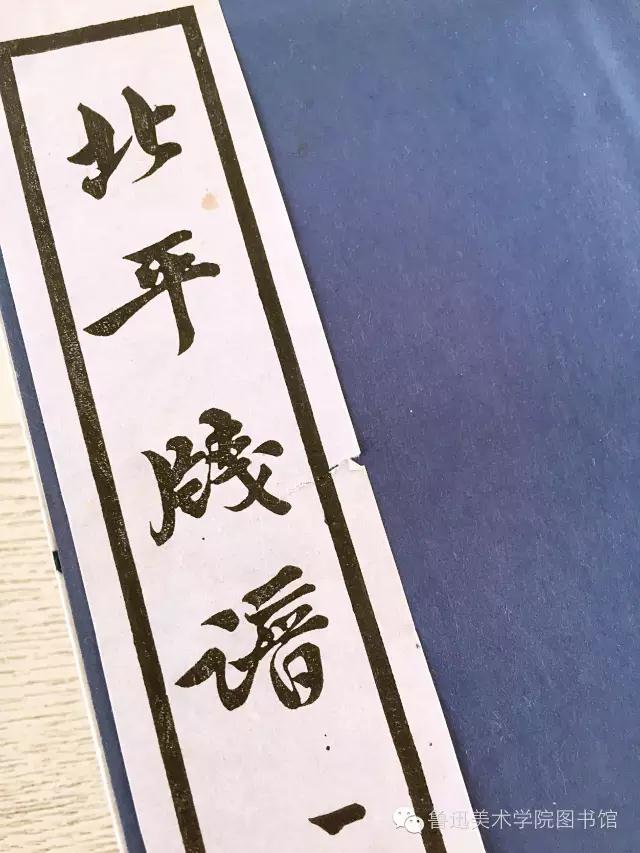 北平牋譜
一
鲁迅美术学院图书馆